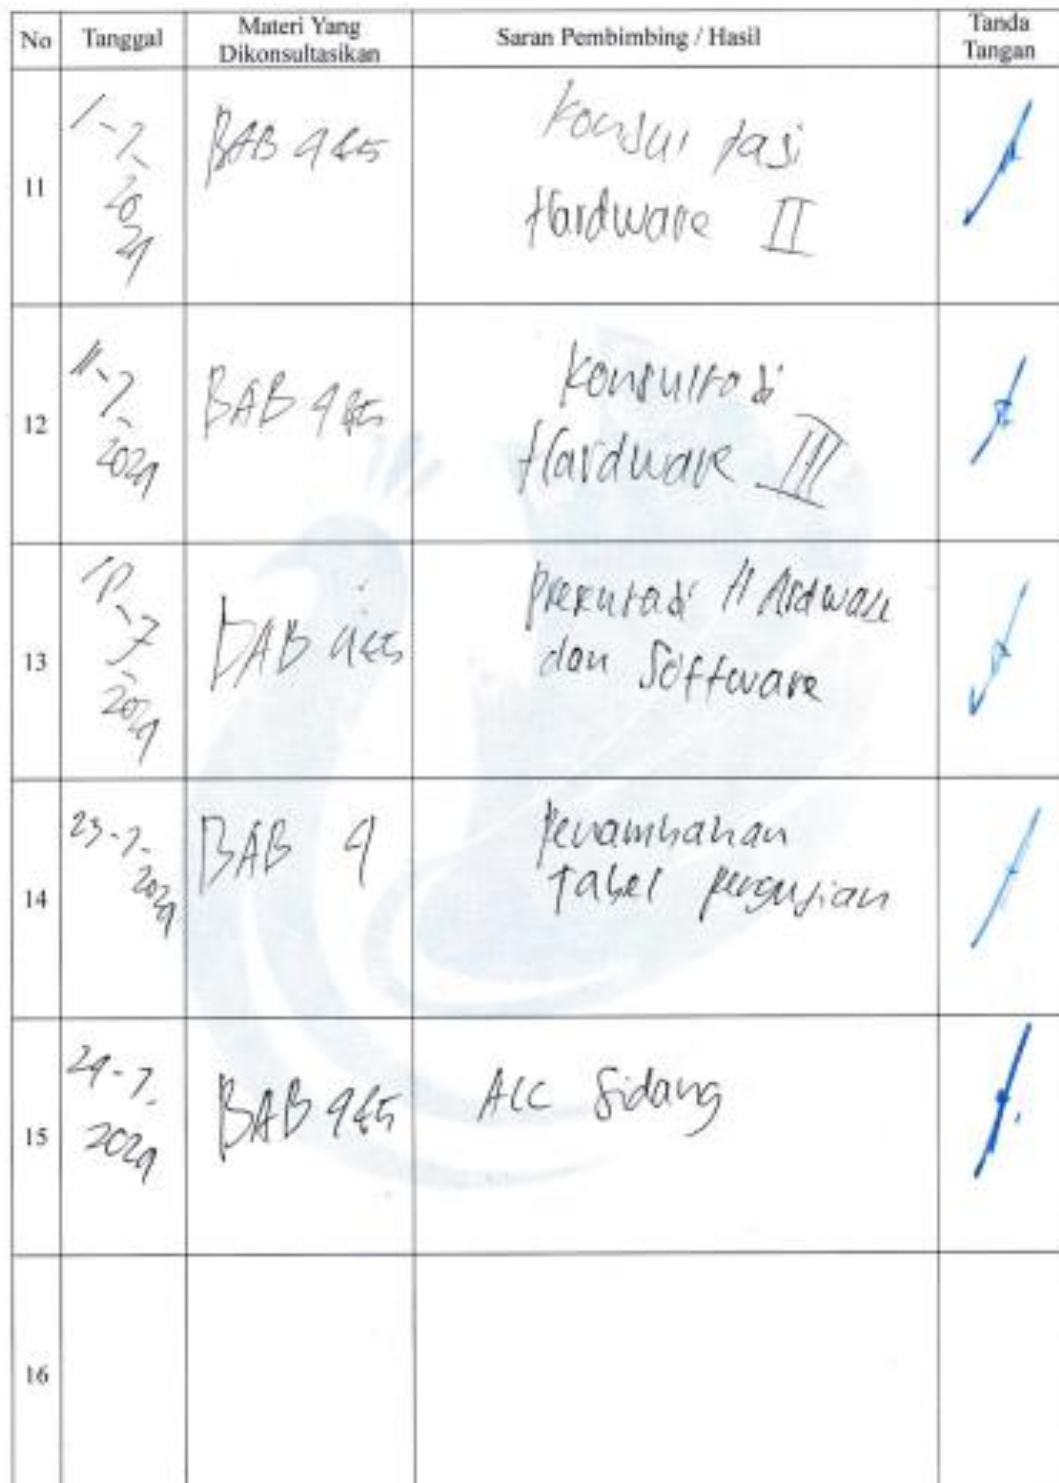 No Tanggal Materi Yang Dikonsultasikan Saran Pembimbing / Hasil Tanda Tangan
11 1-7-2024 BAB 4&5 Konsultasi
Hardware II
12 11-7-2024 BAB 4&5 Konsultasi
Hardware III
13 7-2024 BAB 4&5 Presentasi Hardware
dan Software
14 23-7-2024 BAB 4 Penambahan
Tabel pengujian
15 24-7-2024 BAB 4&5 ACC Sidang
16